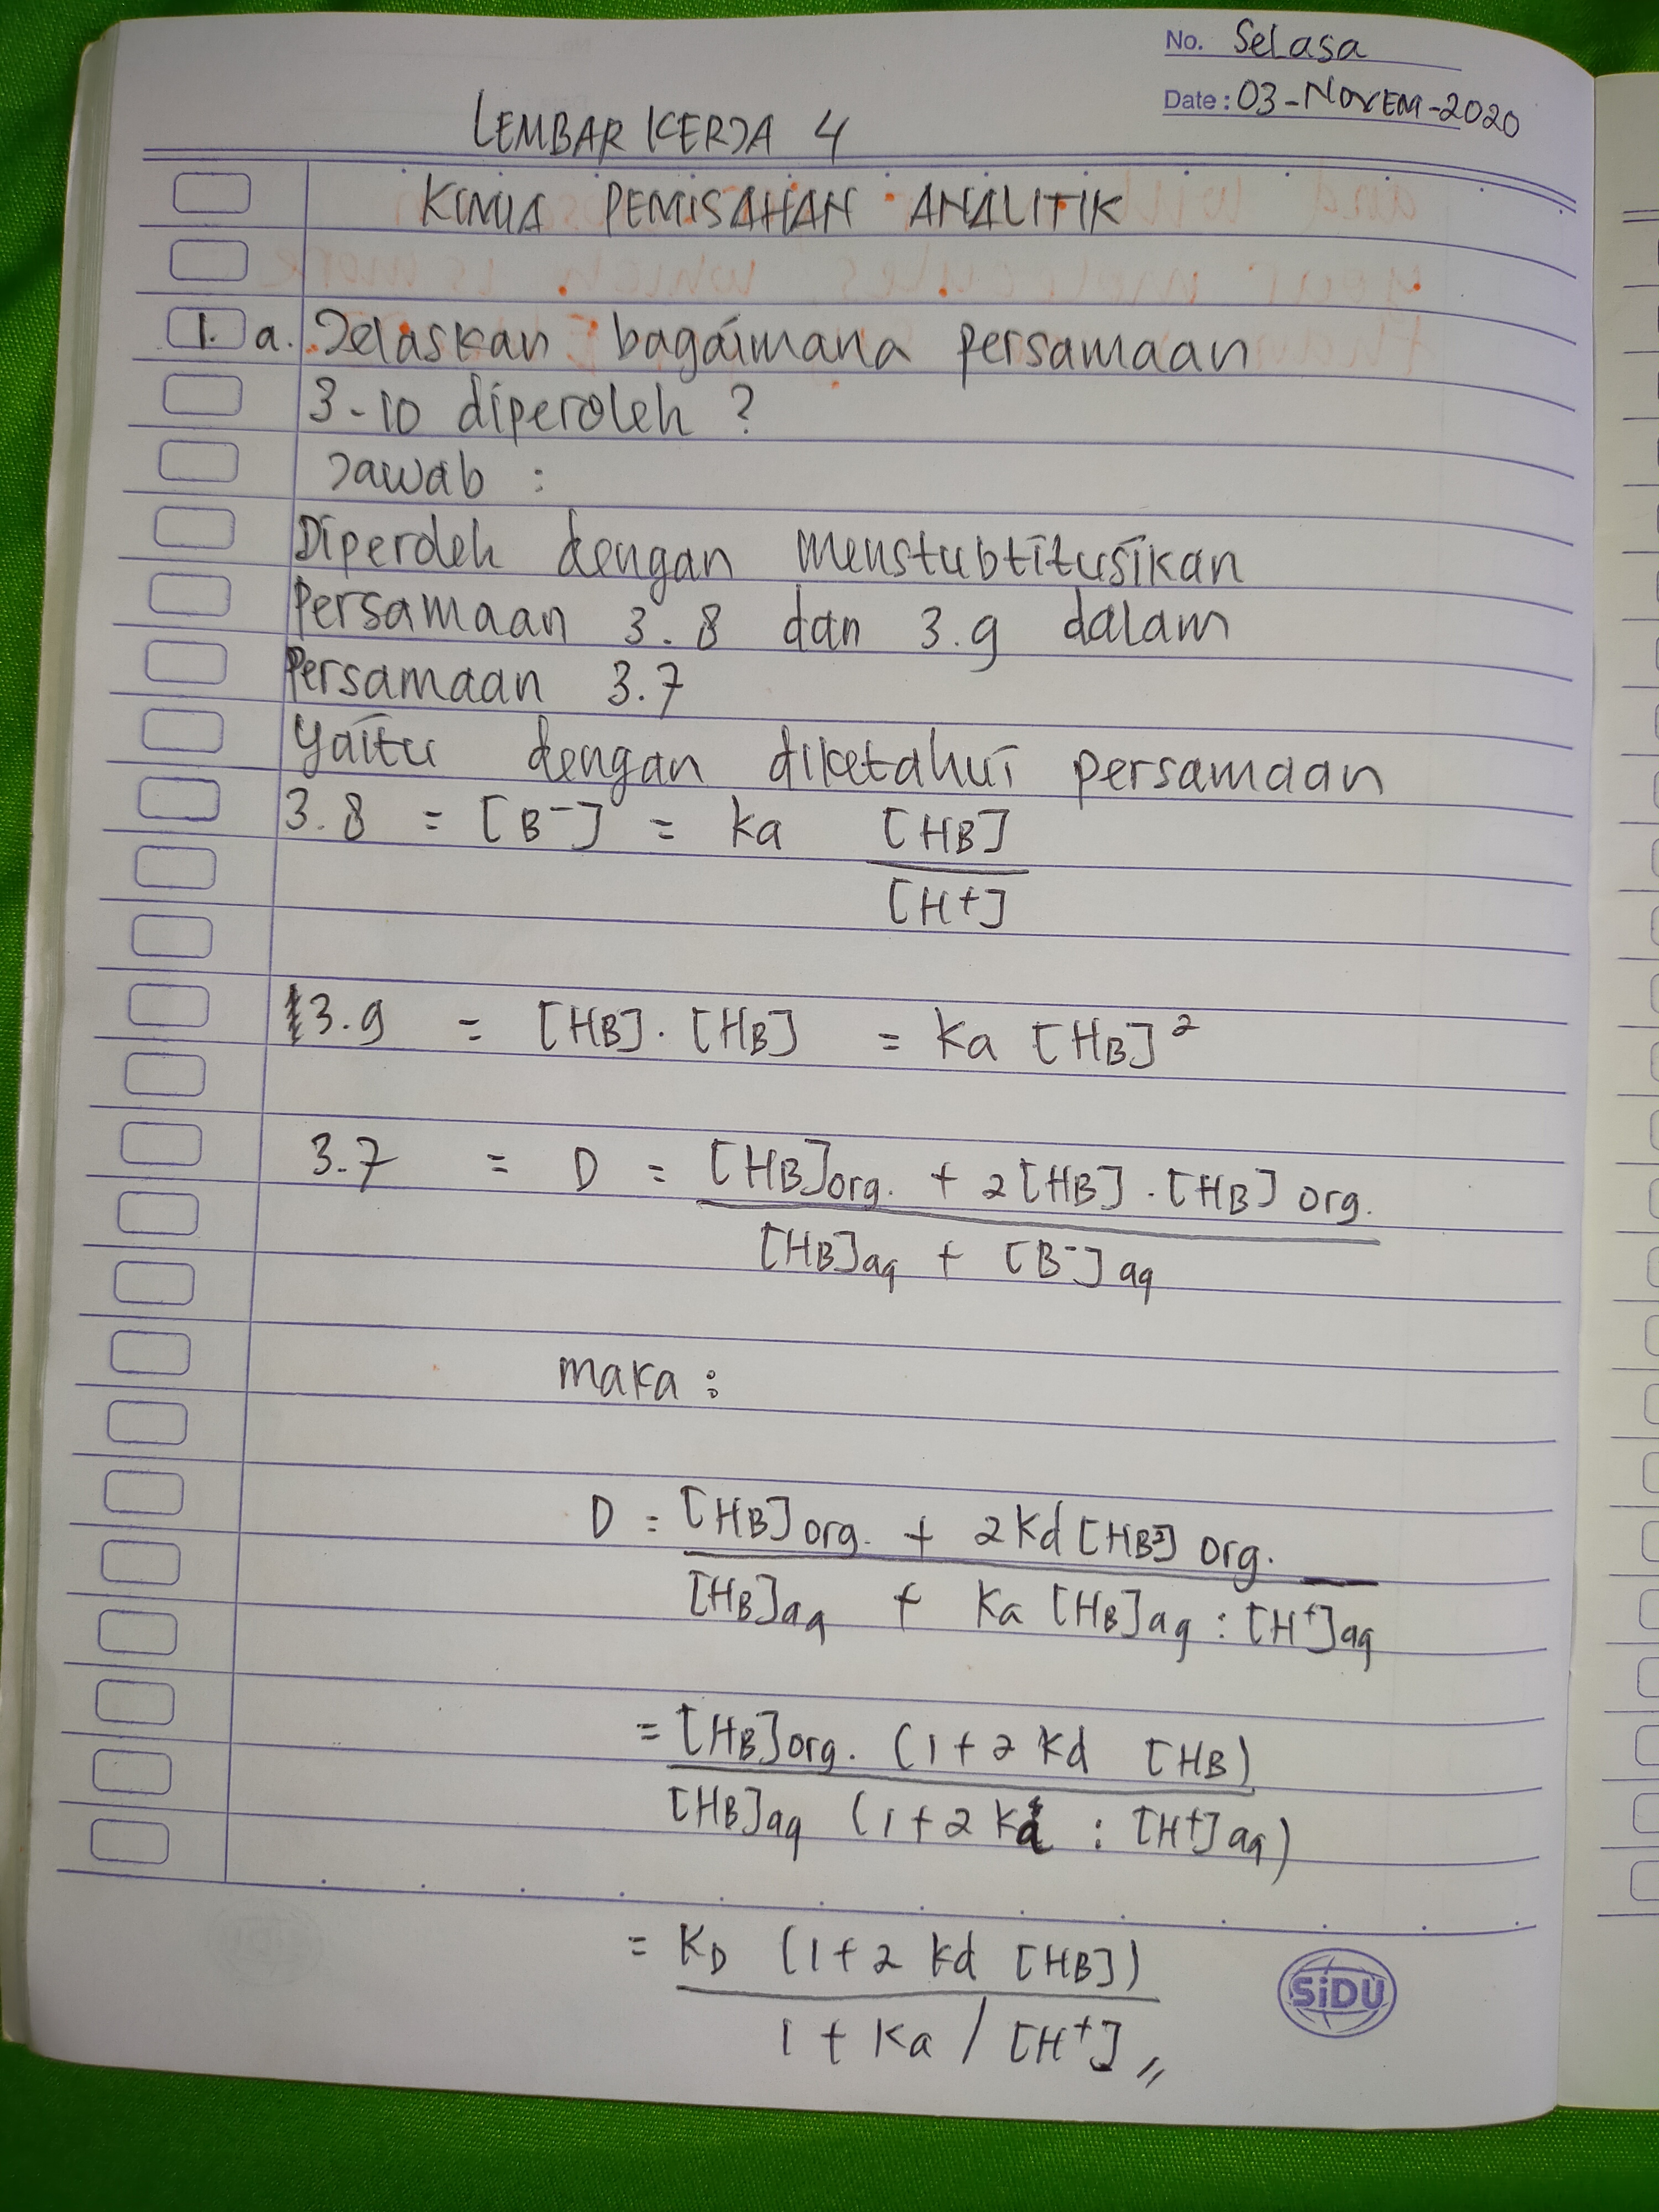 No. Selasa
Date : 03-Novem-2020
LEMBAR KERJA 4
KIMIA PEMISAHAN ANALITIK
1. a. Jelaskan bagaimana persamaan
3-10 diperoleh ?
Jawab :
Diperoleh dengan menstubtitusikan
Persamaan 3.8 dan 3.9 dalam
Persamaan 3.7
Yaitu dengan diketahui persamaan
3.8 = [B⁻] = ka [HB]
[H+]
3.9 = [HB] . [HB] = Ka [HB]²
3.7 = D = [HB]org. + 2[HB] . [HB] org.
[HB]aq + [B⁻] aq
maka :
D = [HB] org. + 2 Kd [HB²] org.
[HB]aq + Ka [HB]aq : [H⁺]aq
= [HB]org. (1 + 2 Kd [HB)
[HB]aq (1 + 2 Ka : [H⁺] aq)
= KD (1 + 2 kd [HB])
1 + Ka / [H⁺] //
SiDU